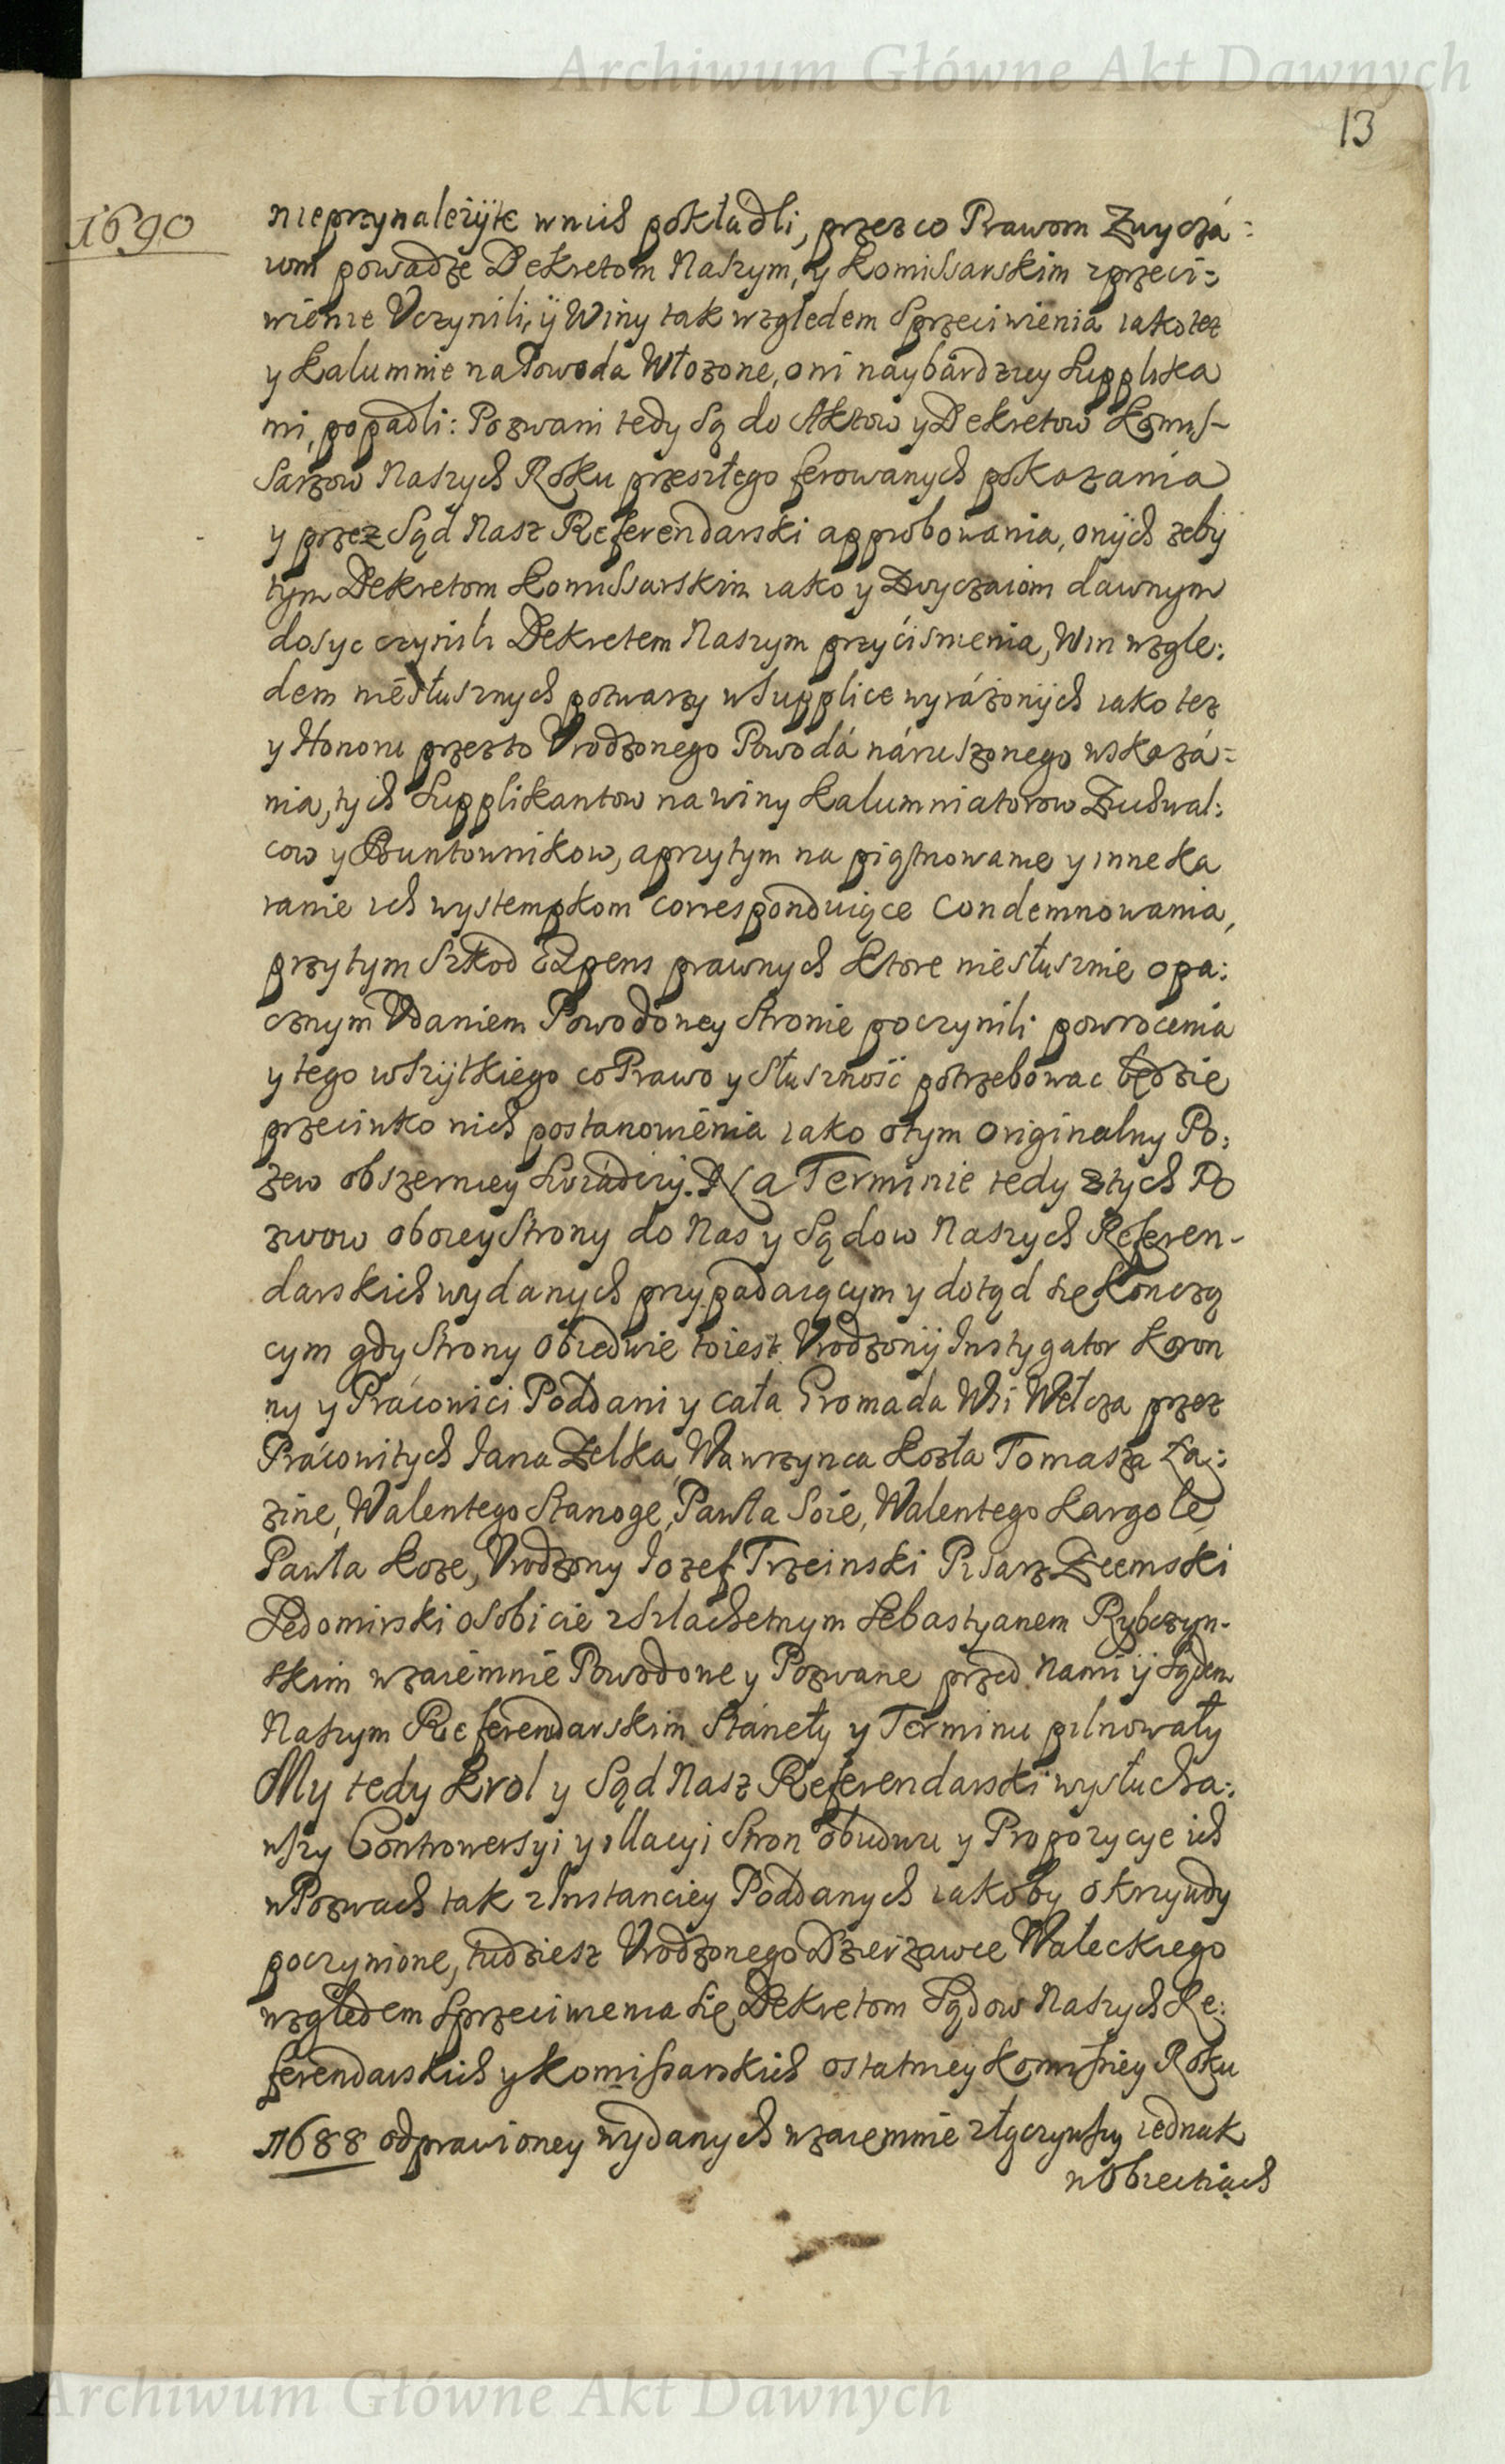 Archiwum Główne Akt Dawnych
13
1690
nieprzynależyte wnich pokładli, przezco Prawom Zwyczá=
iom powadze Dekretom Naszym, y Komissarskim zprzeci:
wienie Vczynili, ÿ Winy tak względem Sprzeciwienia iakotez
y Kalumnie na Powoda Włozone, oni naybardziey Supplika
mi, popadli: Pozwani tedy Są do Aktow y Dekretow Komis-
sarzow Naszych Roku przeszłego ferowanych pokazania
y przez Sąd Nasz Referendarski approbowania, onÿch zebÿ
tym Dekretom Komissarskim iako y Zwyczaiom dawnym
dosyc czynili Dekretem Naszym przyciśnienia, Win wzgle:
dem niesłusznych potwarzy wSupplice wyráżonÿch iako tez
y Honoru przezto Vrodzonego Powodá náruszonego wskazá=
nia, tych Supplikantow na winy Kalumniatorow Zuchwal:
cow y Buntownikow, aprzytym na piątnowanie y inne ka
ranie ich wystempkom correspónduiące Condemnowania,
przytym Szkod Expens prawnych Ktore niesłusznie opa:
cznym Vdaniem Powodowey Stronie poczynili powrocenia
y tego wszÿtkiego co Prawo y Słuszność potrzebowac będzie
przeciwko nich postanowienia iako otym Originalny Po:
zew obszerniey Swiadczÿ. Na Terminie tedy ztych Po
zwow oboiey Strony do Nas y Sądow Naszych Referen-
darskich wydanych przypadaiącym y dotąd się Kończą
cym gdy Strony Obiedwie toiest Vrodzonÿ Instygator Koron
ny y Pracowici Poddani y cała Gromada Wsi Wełcza przez
Pracowitych Jana Zelka, Wawrzynca Kozła Tomasza Zaj:
zine, Walentego Stanoge, Pawła Soie, Walentego Kargole
Pawła Koze, Vrodzony Jozef Trzeinski Pisarz Zięmski
Sędomirski osobiscie zSzlachetnym Sebastyanem Rybczyn-
skim wzaiemnie Powodowe y Pozwane przed Nami ÿ Sądem
Naszym Referendarskim Stánęły y Terminu pilnowały
My tedy Krol y Sąd Nasz Referendarski wysłucha:
wszy Controwersyi y illacyi Stron obudwu y Propozycye ich
wPozwach tak zInstanciey Poddanych iakoby o krzywdy
poczynione, tudziesz Vrodzonego Dzierzawce Wałeckiego
względem Sprzeciwienia się Dekretom Sądow Naszych Re:
ferendarskich y Komissarskich ostatniey Komissiey Roku
1688 odprawioney wydanych wzaiemnie złączywszy iednak
wObiectiach
Archiwum Główne Akt Dawnych